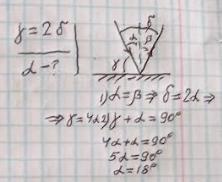 γ = 2δ
α - ?
δ
α
β
γ
1) α = β ⇒ δ = 2α ⇒
⇒ γ = 4α 2) γ + α = 90°
4α + α = 90°
5α = 90°
α = 18°